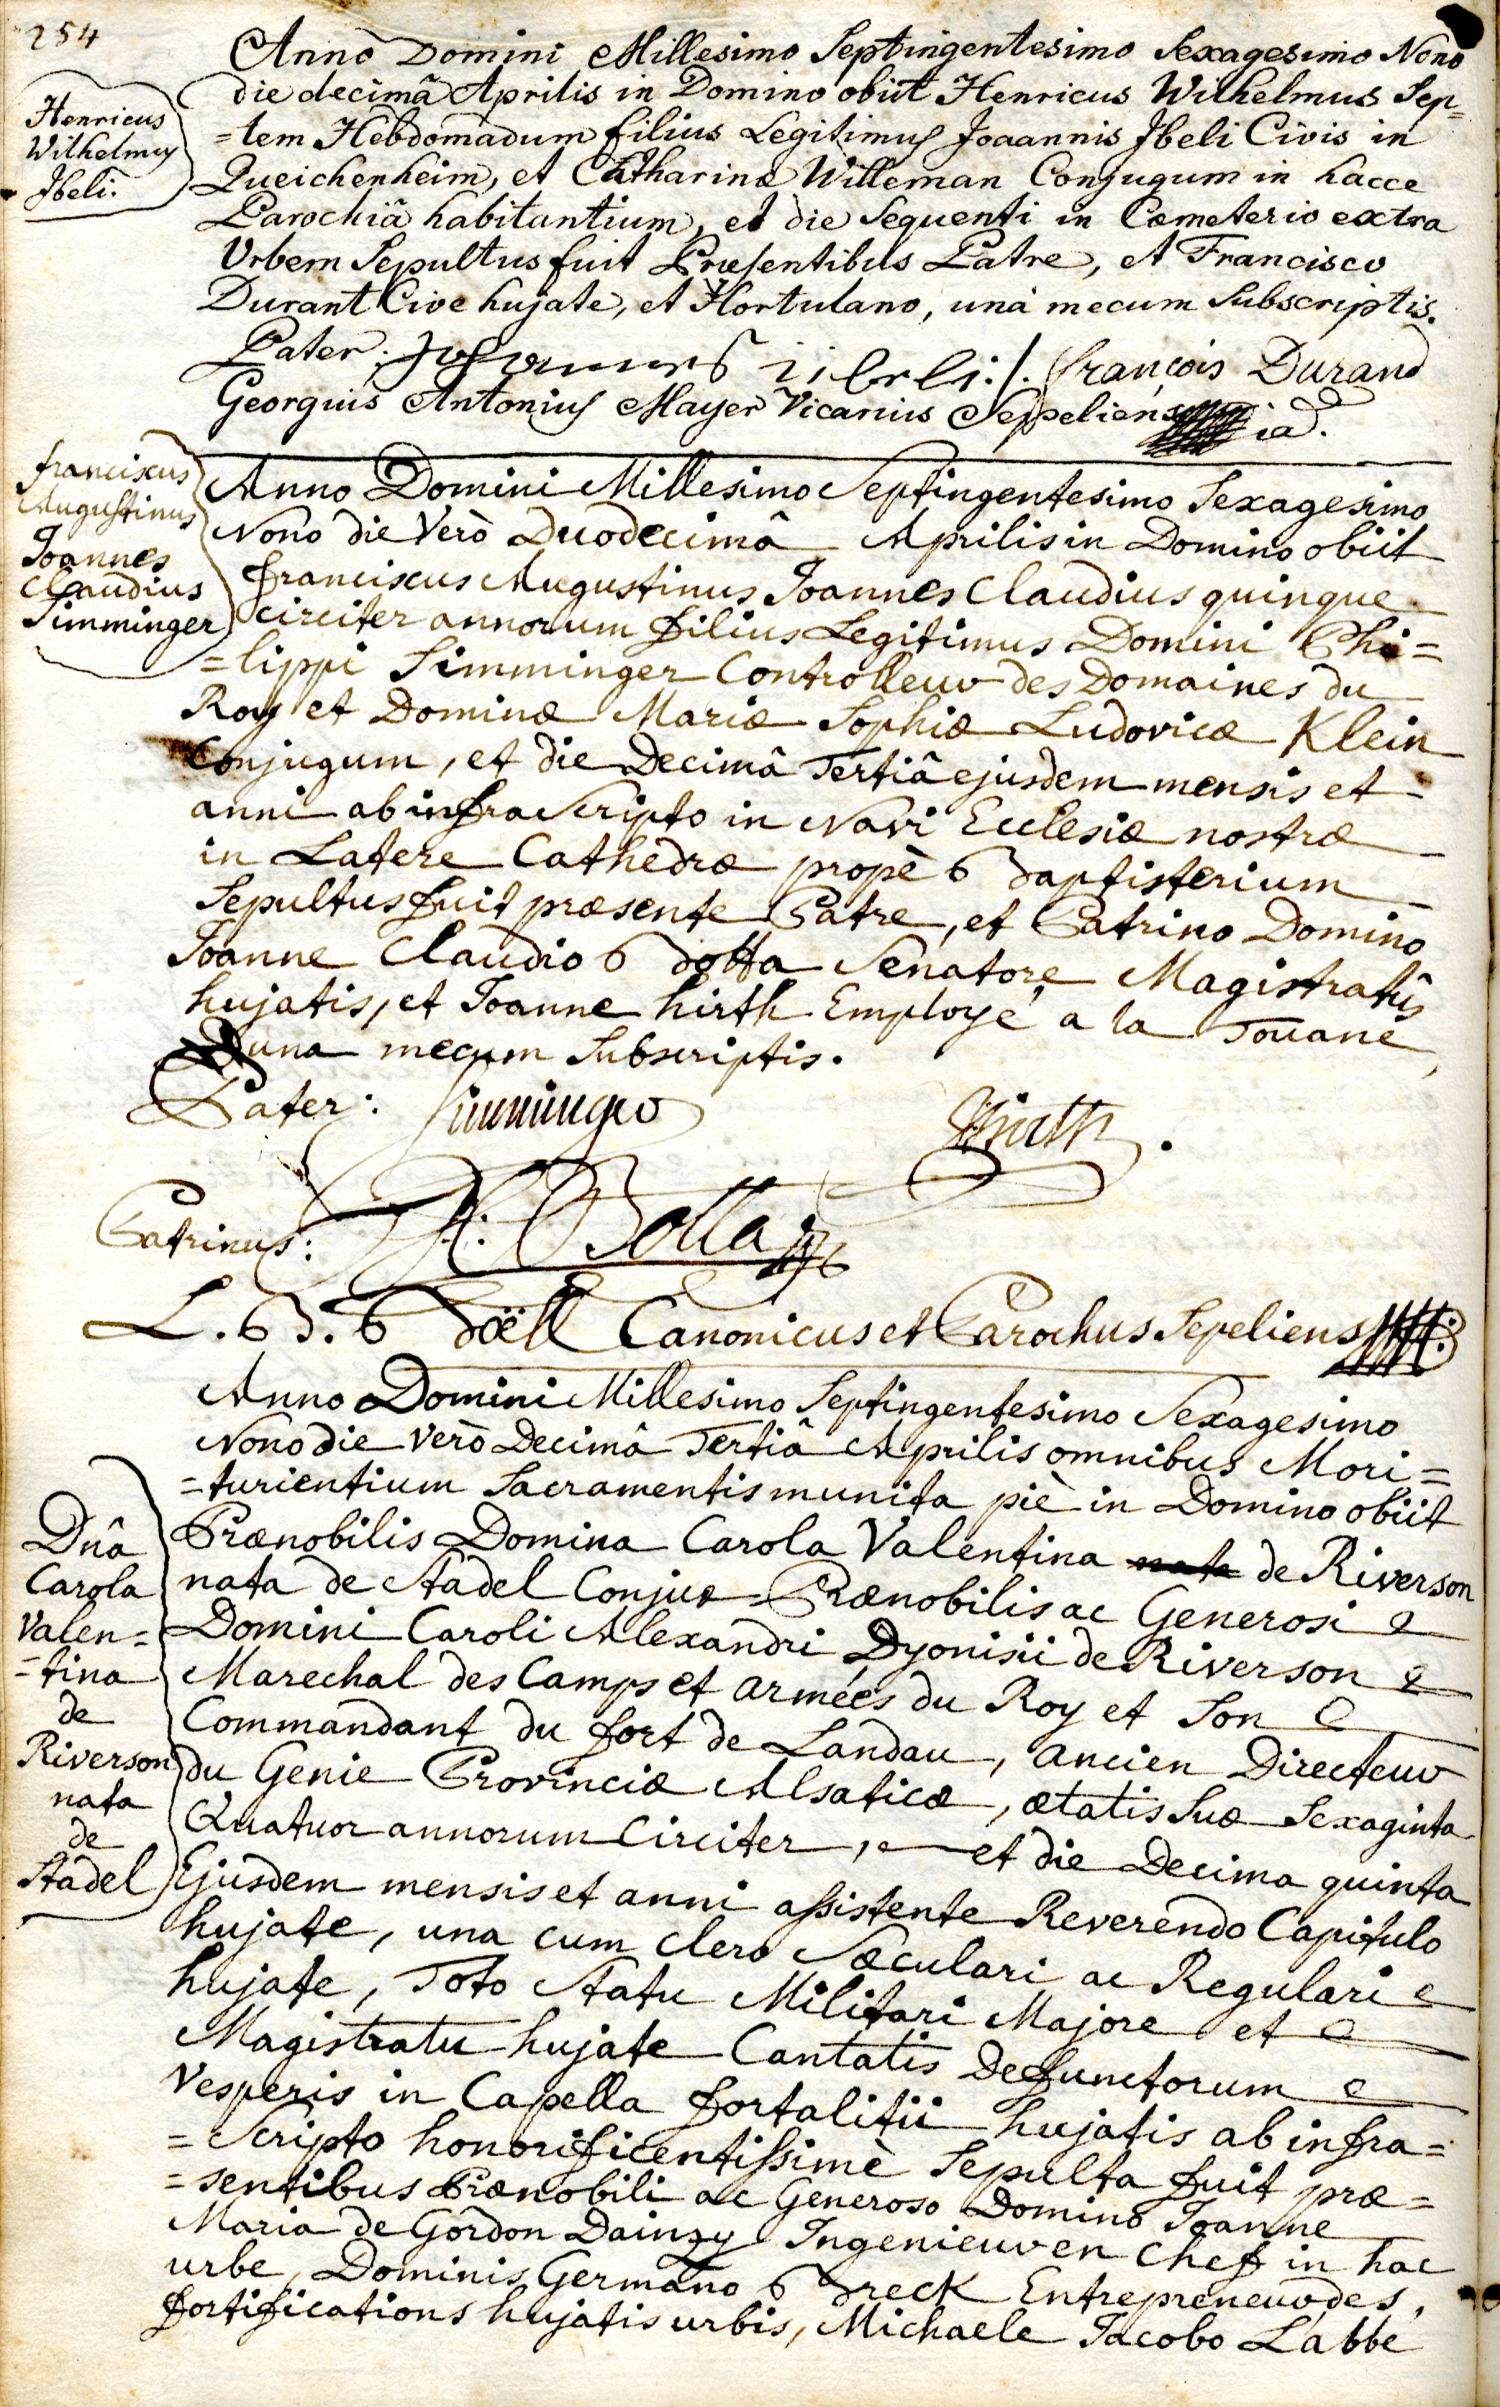 254
Anno Domini Millesimo Septingentesimo Sexagesimo Nono
die decimâ Aprilis in Domino obiit Henricus Wilhelmus Sep=
=tem Hebdomadum filius Legitimus Joaannis Jbeli Civis in
Queichenheim, et Catharinæ Willeman Conjugum in hacce
Parochiâ habitantium, et die Sequenti in Cœmeterio extra
Urbem Sepultus fuit Præsentibus Patre, et Francisco
Durant Cive hujate, et Hortulano, unà mecum Subscriptis.
Henricus
Wilhelmus
Jbeli.
Pater: Johannes iibeli ./. françois Durand
Georgius Antonius Mayer Vicarius Sepeliens
Anno Domini Millesimo Septingentesimo Sexagesimo
Nono die Verò Duodecimâ Aprilis in Domino obiit
franciscus Augustinus Joannes Claudius quinque
circiter annorum filius Legitimus Domini Phi=
=lippi Simminger Controlleur des Domaines du
Roy et Dominæ Mariæ Sophiæ Ludovicæ Klein
Conjugum, et die Decimâ Tertiâ ejusdem mensis et
anni ab infra Scripto in Navi Ecclesiæ nostræ
in Latere Cathedræ propè Baptisterium
Sepultus fuit præsente Patre, et Patrino Domino
Joanne Claudio Botta Senatore Magistratûs
hujatis, et Joanne hirth Employé a la Douane,
una mecum Subscriptis.
franciscus
Augustinus
Joannes
Claudius
Simminger
Pater: Simminger Hirth.
Patrinus: Botta
L. B. Böell Canonicus et Parochus Sepeliens
Anno Domini Millesimo Septingentesimo Sexagesimo
Nono die Verò Decimâ Tertiâ Aprilis omnibus Mori=
=turientium Sacramentis munita piè in Domino obiit
Prænobilis Domina Carola Valentina nata de Riverson
nata de Stadel Conjux Prænobilis ac Generosi
Domini Caroli Alexandri Dyonisii de Riverson
Marechal des Camps et armées du Roy et Son
Commandant du fort de Landau, ancien Directeur
du Genie Provinciæ Alsaticæ, ætatis Suæ Sexaginta
Quatuor annorum Circiter, et die Decima quinta
Ejusdem mensis et anni assistente Reverendo Capitulo
hujate, una cum Clero Sæculari ac Regulari
hujate, Toto Statu Militari Majore et
Magistratu hujate Cantatis Defunctorum
Vesperis in Capella fortalitii hujatis ab infra=
=Scripto honorificentissimè Sepulta fuit præ=
=sentibus Prænobili ac Generoso Domino Joanne
Maria de Gordon Dainzy Ingenieur en Chef in hac
urbe, Dominis Germano Breck Entrepreneur des
fortifications hujatis urbis, Michaele Jacobo Labbe
Dnâ
Carola
Valen=
=tina
de
Riverson
nata
de
Stadel